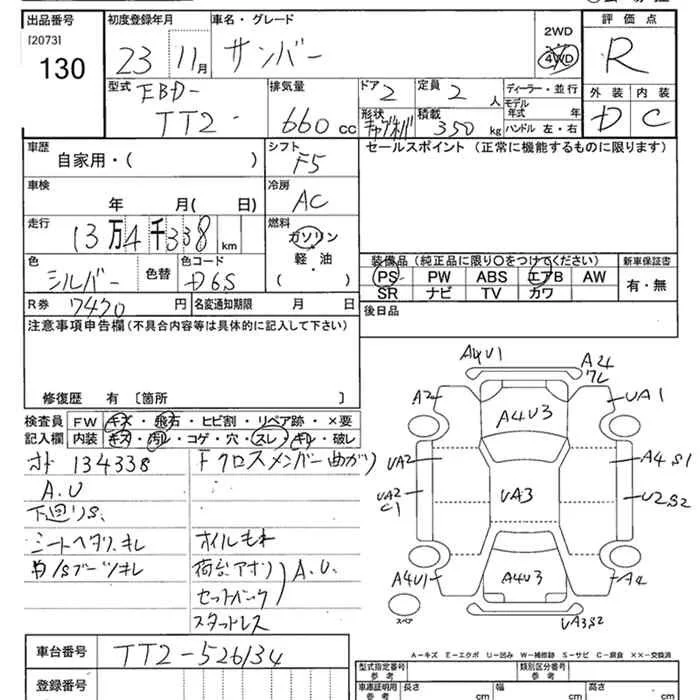 出品番号
[2073]
130
初度登録年月
23 11月
車名・グレード
サンバー
2WD
4WD
評価点
R
型式
EBD-
TT2-
排気量
660 cc
ドア
2
定員
2 人
ディーラー・並行
モデル
年式 年
ハンドル 左・右
形状
積載
350 kg
外装 内装
D C
車歴
自家用・( )
シフト
F5
セールスポイント(正常に機能するものに限ります)
車検
年 月( 日)
冷房
AC
走行
13万4千338 km
燃料
ガソリン
軽・油
( )
色
シルバー
色替
色コード
D6S
装備品(純正品に限り○をつけてください)
PS PW ABS エアB AW
SR ナビ TV カワ
新車保証書
有・無
R券
7470 円
名変通知期限 月 日
後日品
注意事項申告欄(不具合内容等は具体的に記入して下さい)
修復歴 有 〔箇所 〕
検査員
記入欄
FW キズ・飛石・ヒビ割・リペア跡・×要
内装 キズ・汚れ・コゲ・穴・スレ・キレ・破レ
134338
Fクロスメンバー曲がり
A.U
下回りS.
シートヘタリ.キレ
オイルモレ
D/Sブーツキレ
荷台アオリ
セットバック
A.U.
スタットレス
A4V1
A24
7L
A2
UA1
A4V3
UA2
A4S1
UA2
C1
UA3
U2S2
A4U1
A4V3
A2
UA3S2
スペア
車台番号
TT2-526134
登録番号
A-キズ E-エクボ U-凹み W-補修跡 S-サビ C-腐食 XX-交換済
型式指定番号
参考
類別区分番号
参考
車庫証明用
参考
長さ cm
幅 cm
高さ cm